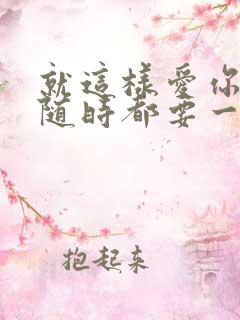 就這樣愛你
随時都要一
抱起来